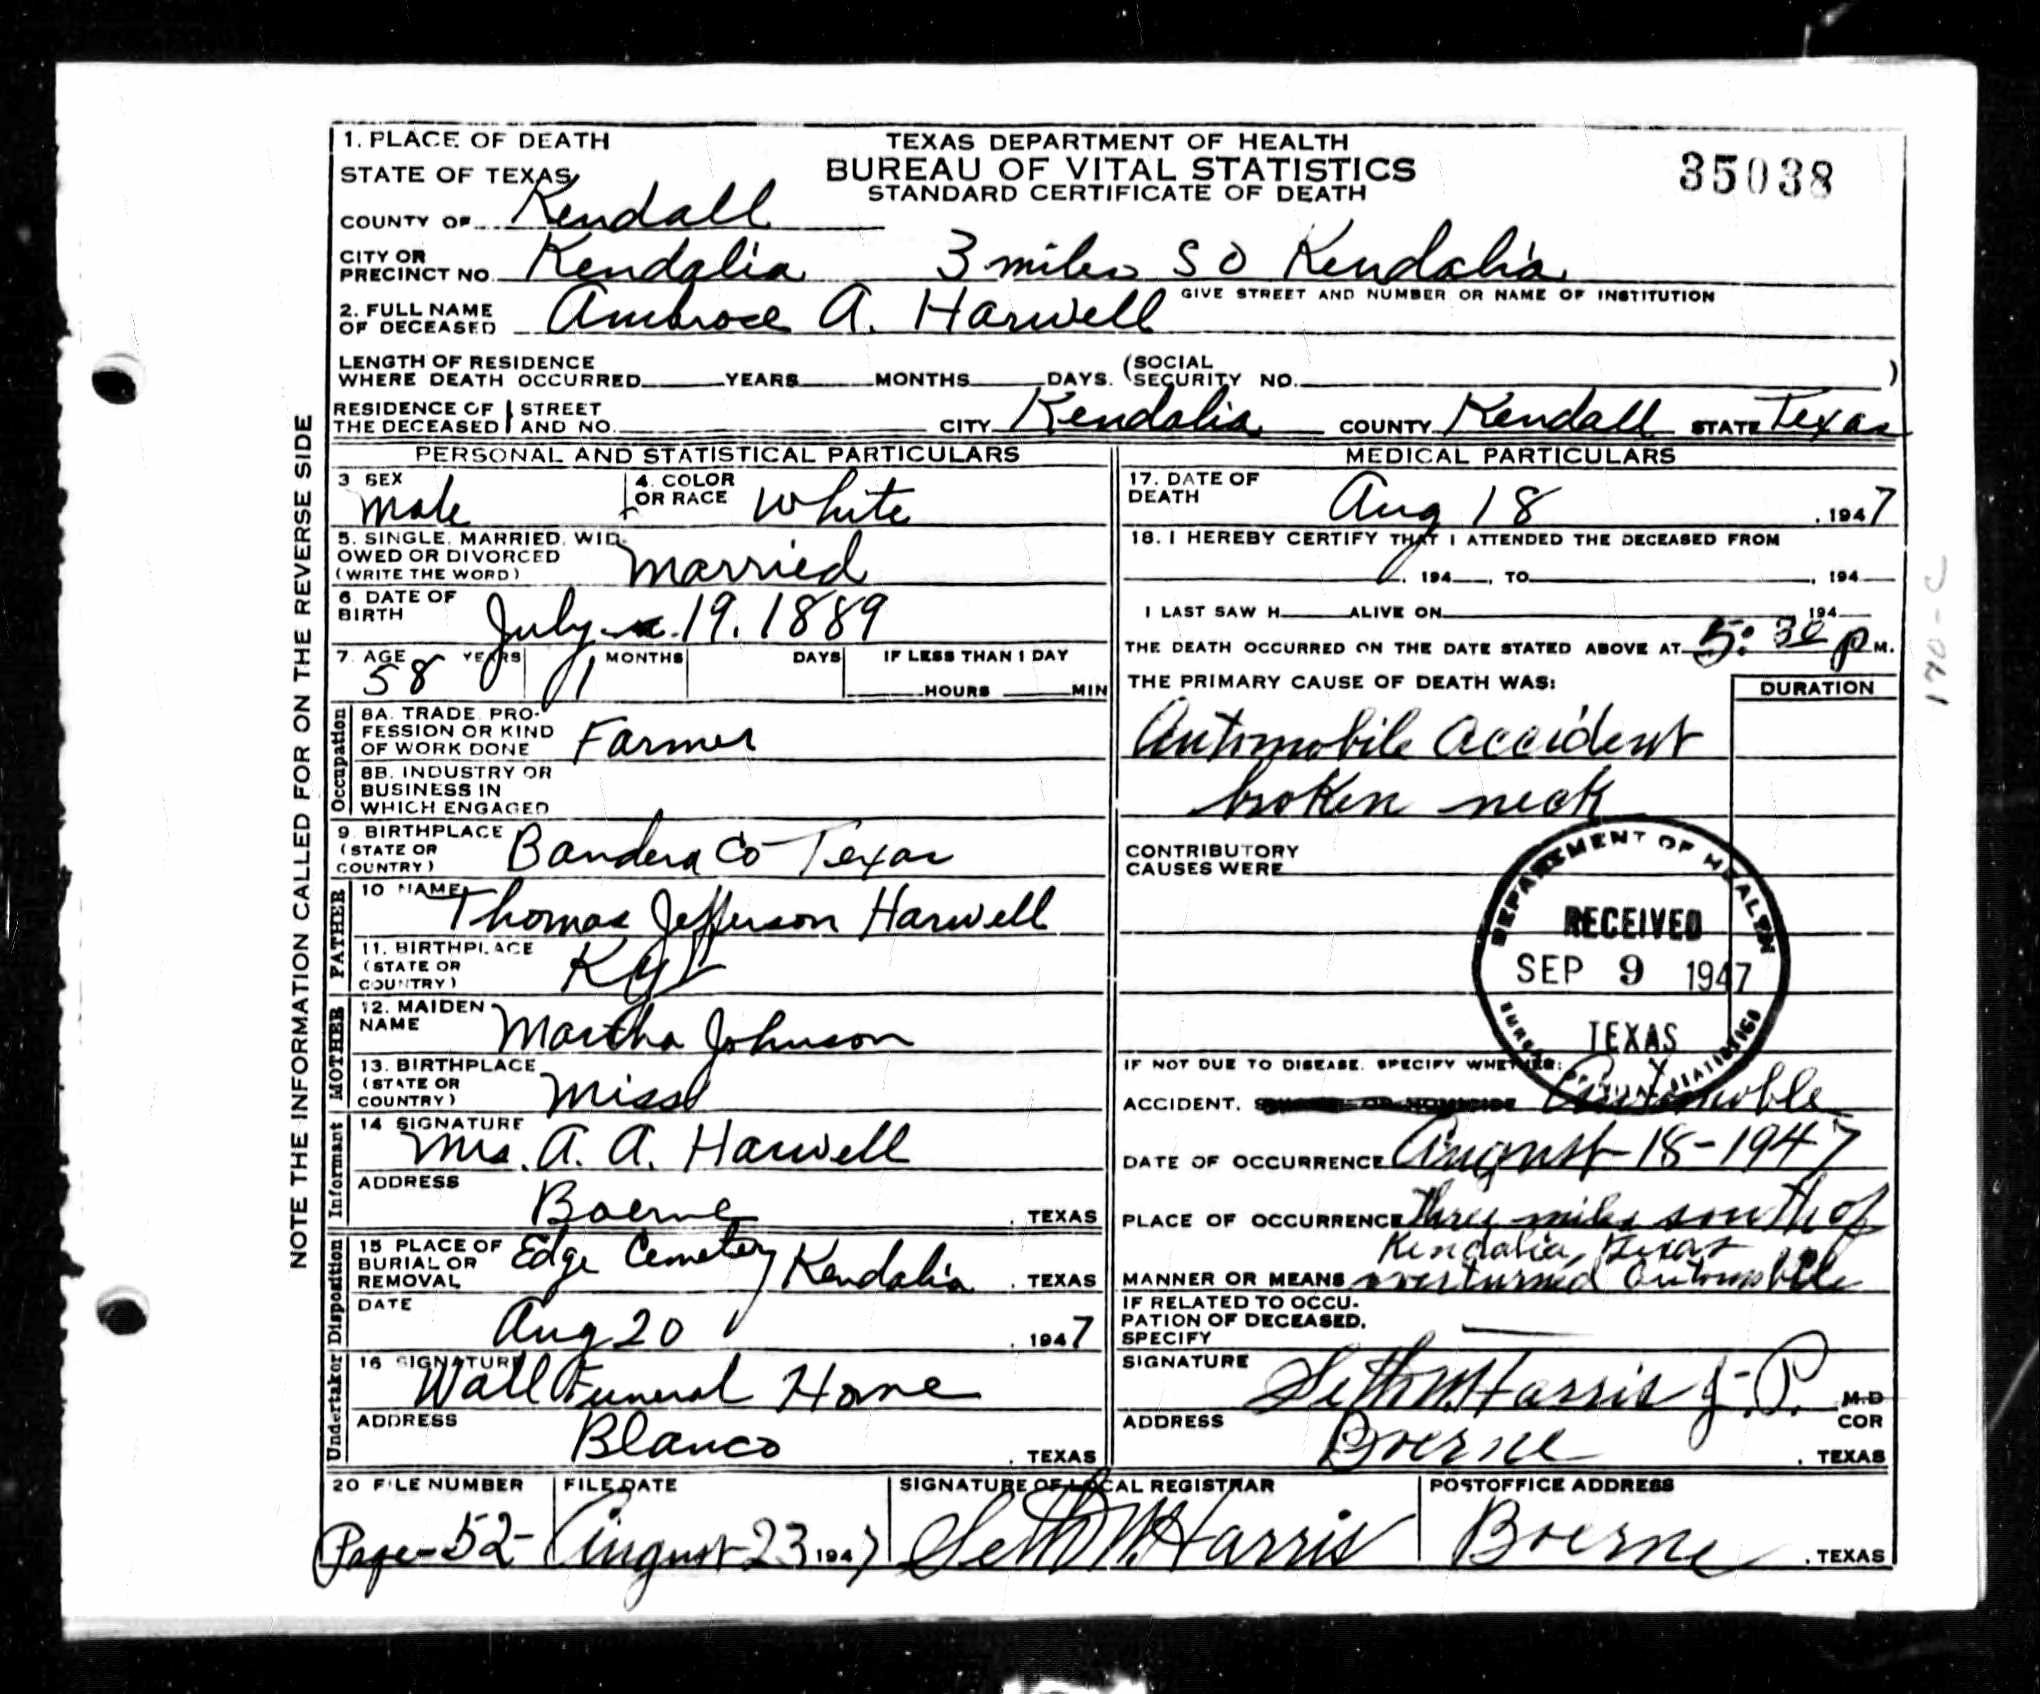 1. PLACE OF DEATH
STATE OF TEXAS
TEXAS DEPARTMENT OF HEALTH
BUREAU OF VITAL STATISTICS
STANDARD CERTIFICATE OF DEATH
35038
COUNTY OF Kendall
CITY OR PRECINCT NO. Kendalia 3 miles S O Kendalia
GIVE STREET AND NUMBER OR NAME OF INSTITUTION
2. FULL NAME OF DECEASED Ambrose A. Harwell
LENGTH OF RESIDENCE WHERE DEATH OCCURRED YEARS MONTHS DAYS. (SOCIAL SECURITY NO. )
RESIDENCE OF THE DECEASED STREET AND NO. CITY Kendalia COUNTY Kendall STATE Texas
NOTE THE INFORMATION CALLED FOR ON THE REVERSE SIDE
PERSONAL AND STATISTICAL PARTICULARS
3 SEX Male 4. COLOR OR RACE White
5. SINGLE, MARRIED, WIDOWED OR DIVORCED (WRITE THE WORD) Married
6 DATE OF BIRTH July 19. 1889
7. AGE 58 YEARS 1 MONTHS DAYS IF LESS THAN 1 DAY HOURS MIN
Occupation
8A. TRADE, PROFESSION OR KIND OF WORK DONE Farmer
8B. INDUSTRY OR BUSINESS IN WHICH ENGAGED
9. BIRTHPLACE (STATE OR COUNTRY) Bandera Co Texas
FATHER
10 NAME Thomas Jefferson Harwell
11. BIRTHPLACE (STATE OR COUNTRY) Ky
MOTHER
12. MAIDEN NAME Martha Johnson
13. BIRTHPLACE (STATE OR COUNTRY) Miss
Informant
14 SIGNATURE Mrs. A. A. Harwell
ADDRESS Boerne, TEXAS
Disposition
15 PLACE OF BURIAL OR REMOVAL Edge Cemetery Kendalia, TEXAS
DATE Aug 20, 1947
Undertaker
16 SIGNATURE Wall Funeral Home
ADDRESS Blanco, TEXAS
MEDICAL PARTICULARS
17. DATE OF DEATH Aug 18, 1947
18. I HEREBY CERTIFY THAT I ATTENDED THE DECEASED FROM
, 194 , TO , 194
I LAST SAW H ALIVE ON 194
THE DEATH OCCURRED ON THE DATE STATED ABOVE AT 5:30 P M.
THE PRIMARY CAUSE OF DEATH WAS: DURATION
Automobile accident
broken neck
CONTRIBUTORY CAUSES WERE
DEPARTMENT OF HEALTH
RECEIVED
SEP 9 1947
TEXAS
BUREAU OF VITAL STATISTICS
IF NOT DUE TO DISEASE, SPECIFY WHETHER:
ACCIDENT, SUICIDE OR HOMICIDE Automoble
DATE OF OCCURRENCE August 18-1947
PLACE OF OCCURRENCE Three miles south of
Kendalia, Texas
MANNER OR MEANS overturned automobile
IF RELATED TO OCCUPATION OF DECEASED, SPECIFY —
SIGNATURE Seth W. Harris J.P. M.D COR
ADDRESS Boerne, TEXAS
170-C
20 FILE NUMBER FILE DATE SIGNATURE OF LOCAL REGISTRAR POSTOFFICE ADDRESS
Page-52- August-23 1947 Seth W. Harris Boerne, TEXAS